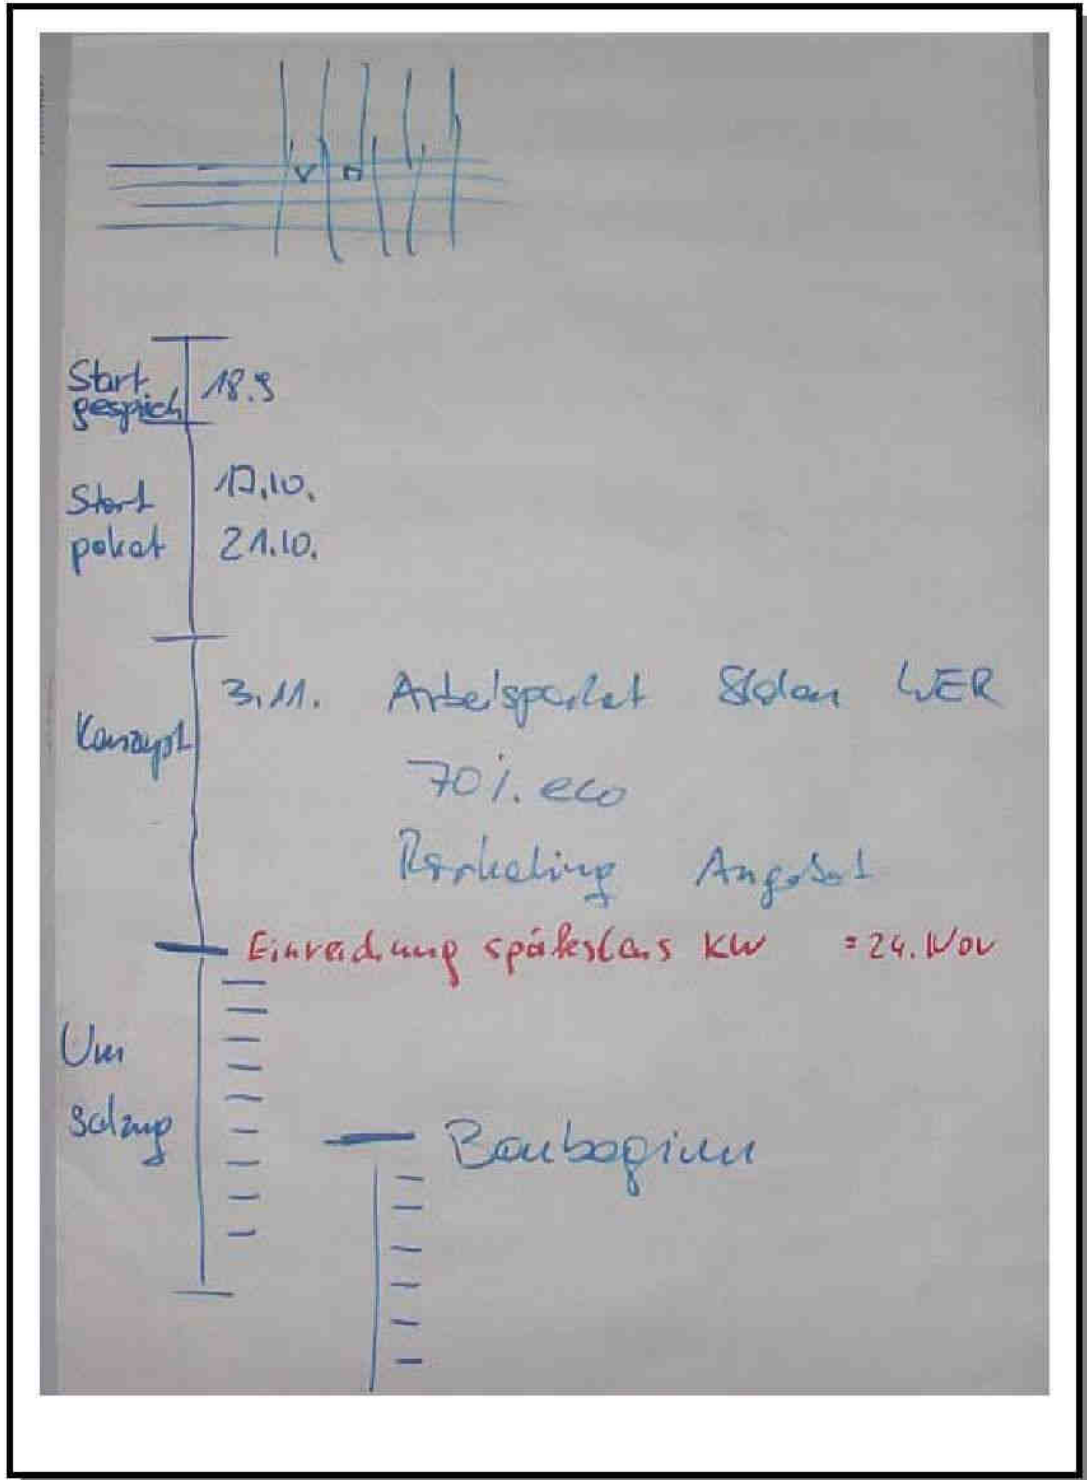 Start
gespräch 18.9
17.10.
Start
paket 21.10.
3.11. Arbeitspaket WER
Konzept
70%. eco
Marketing Angebot
Einreichung spätestens KW = 24. Nov
Um
setzung
Baubeginn